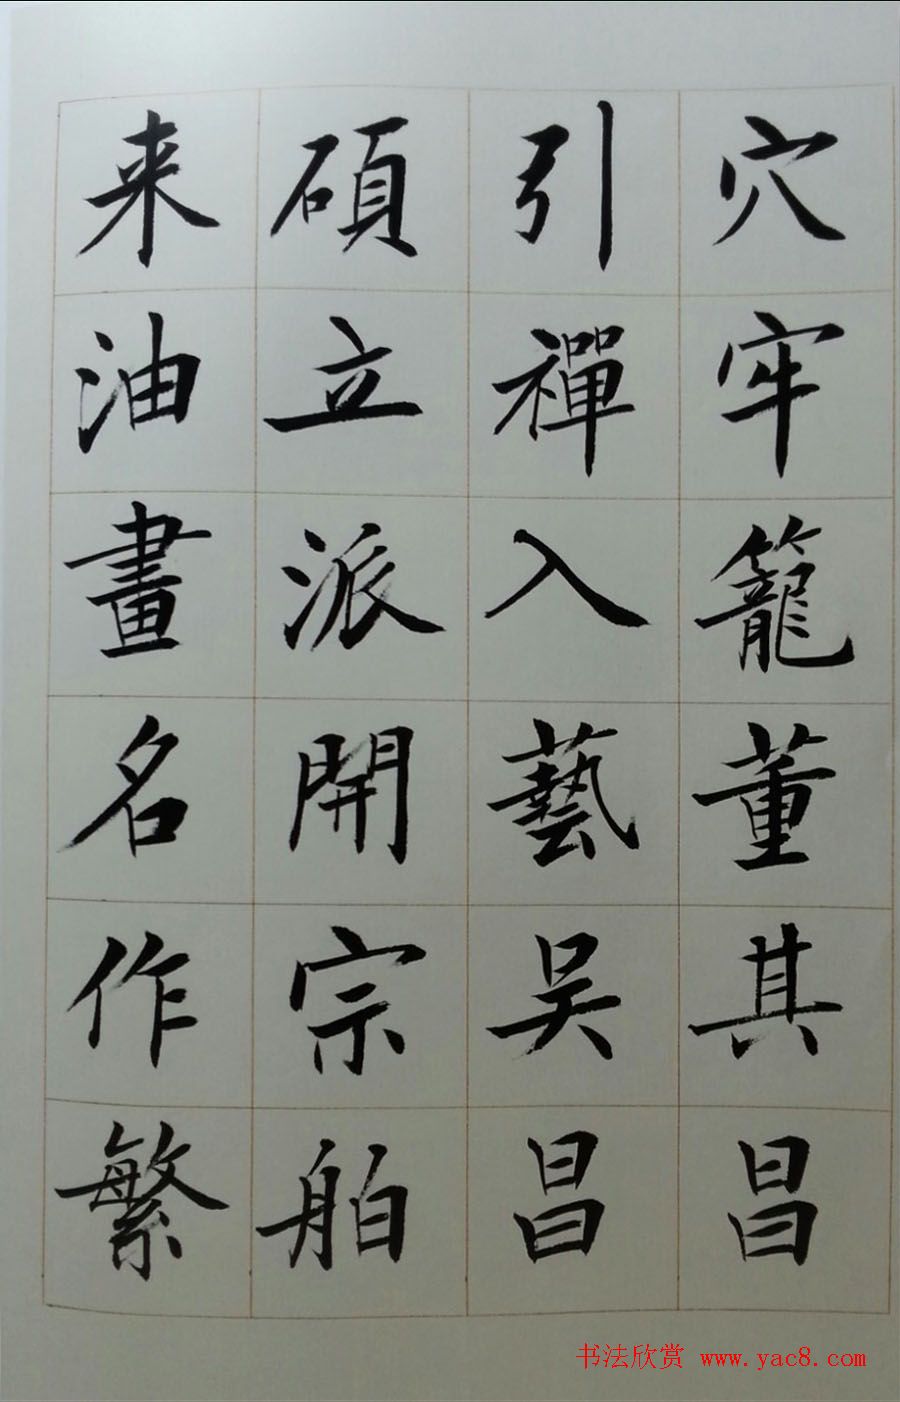 穴牢籠董其昌
引禪入藝吴昌
碩立派開宗舶
来油畫名作繁
书法欣赏 www.yac8.com